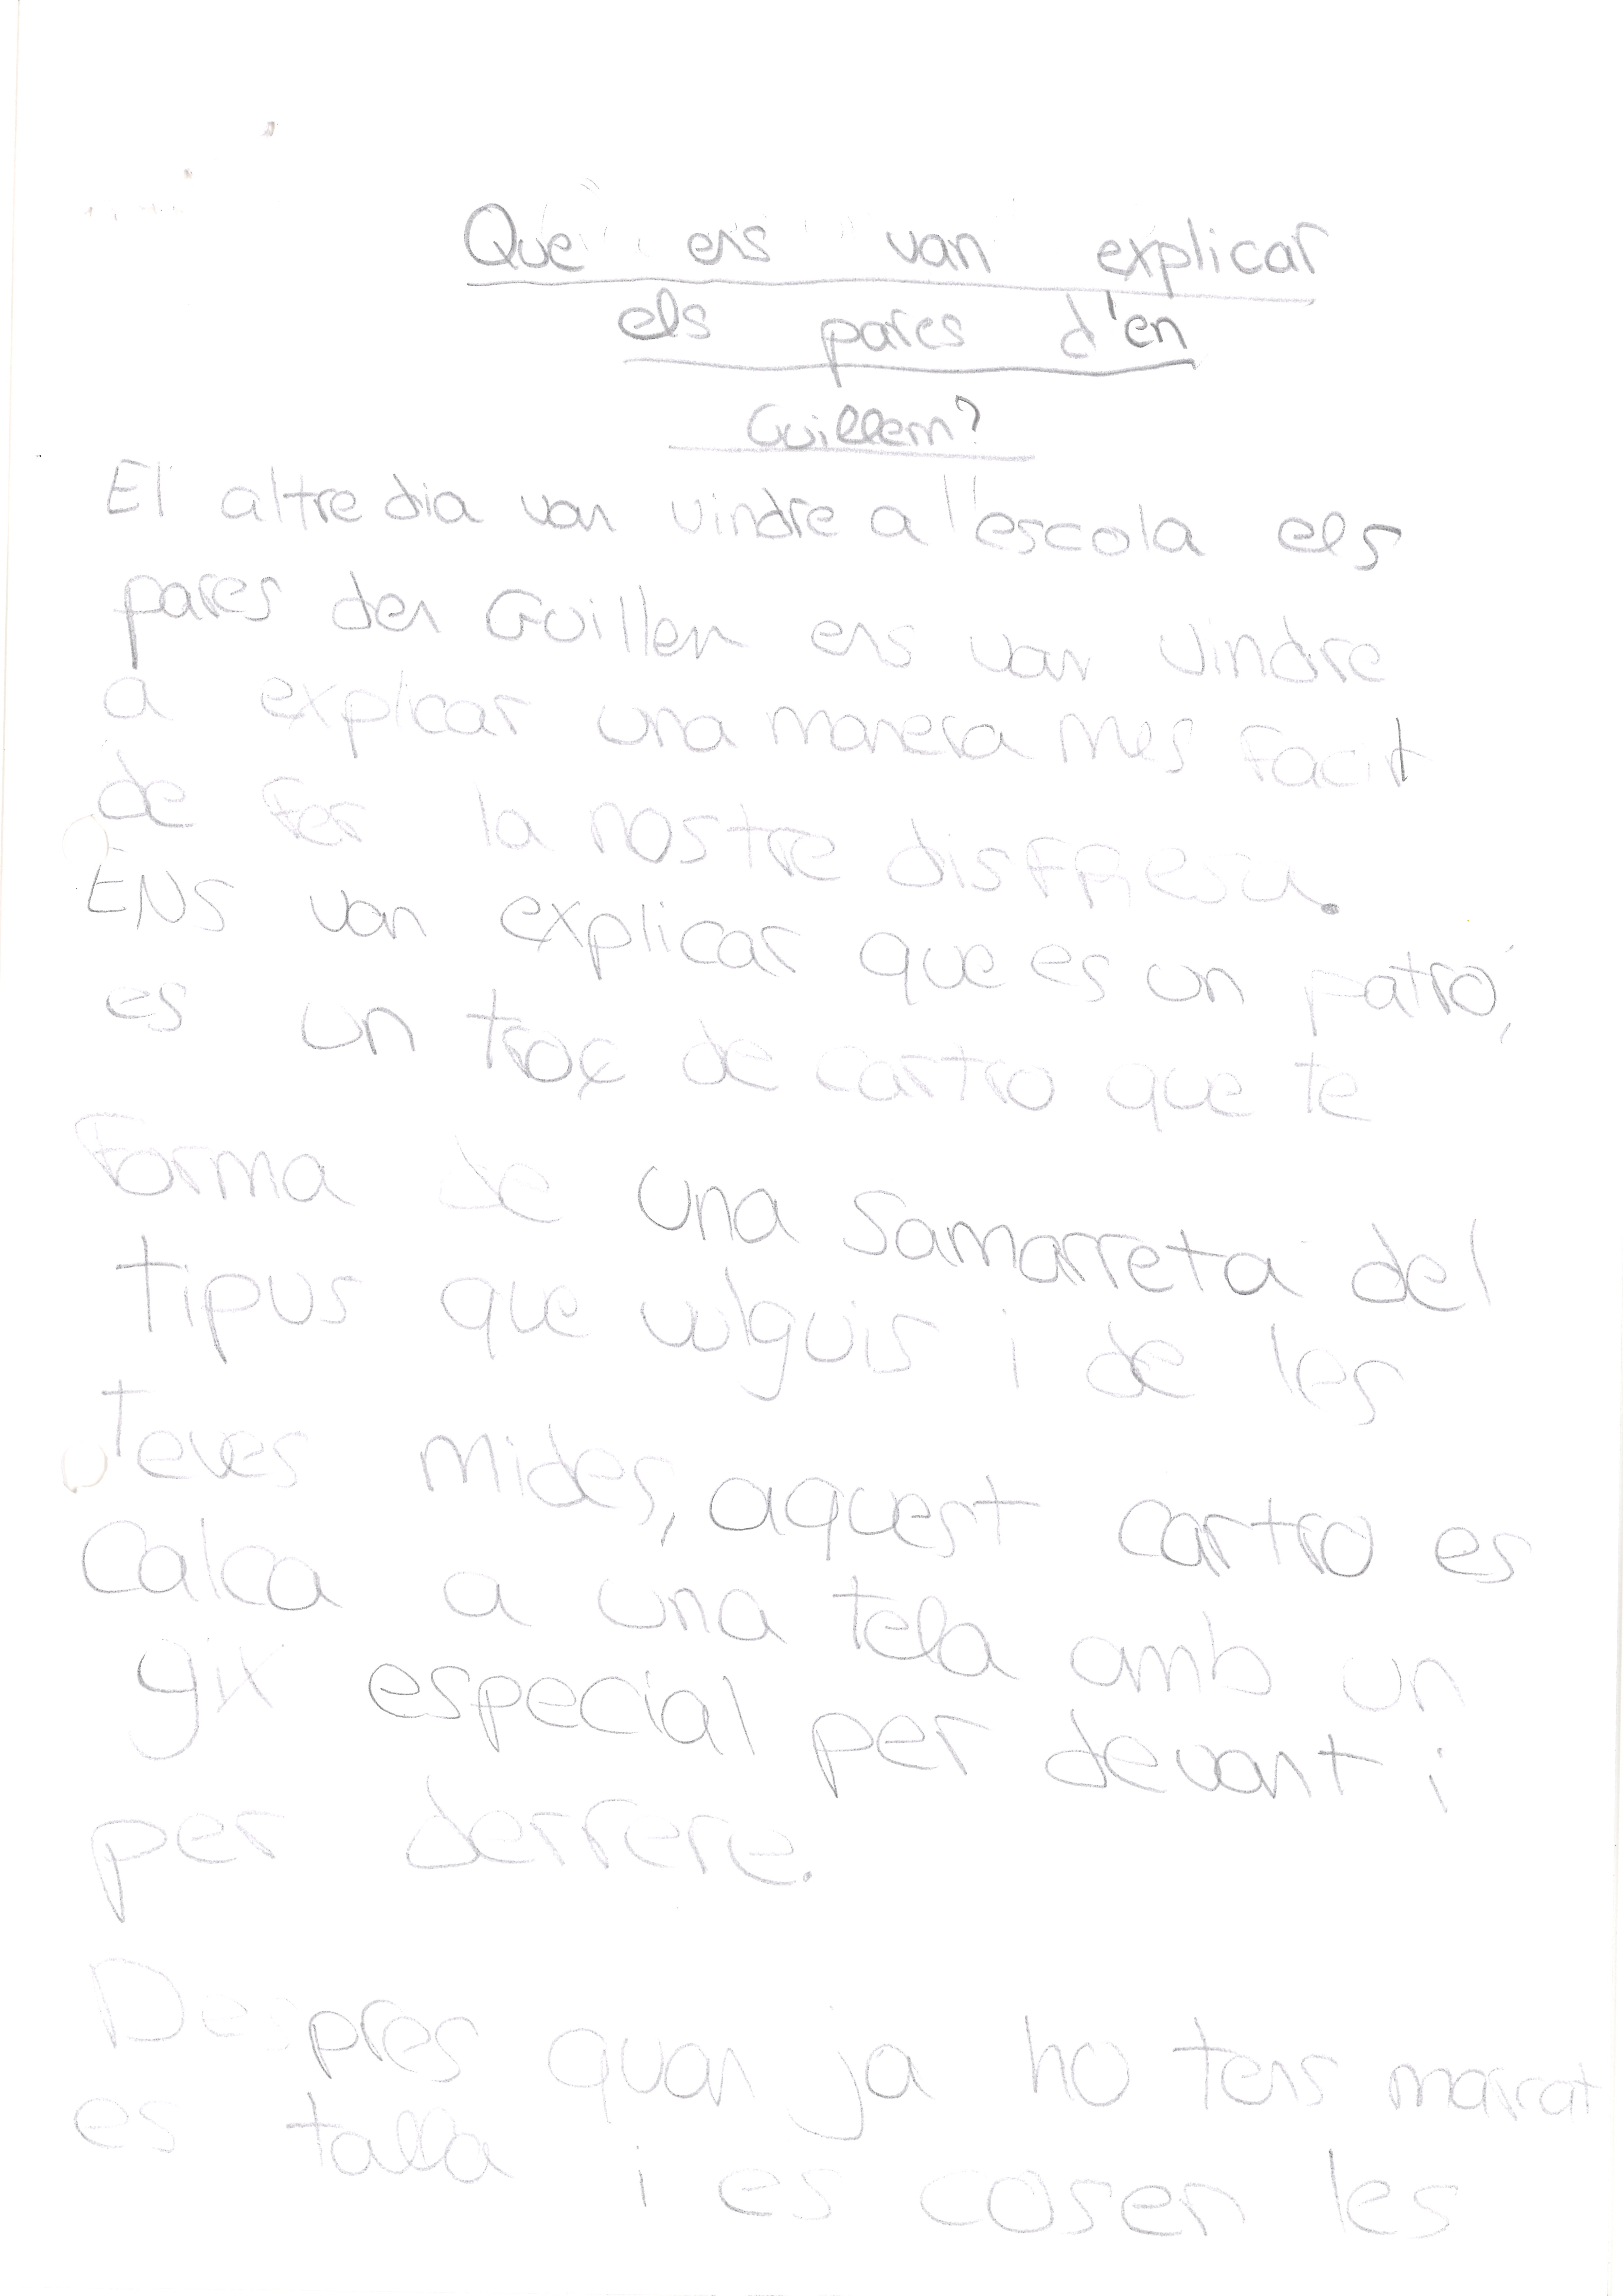 Que ens van explicar
els pares d'en
Guillem?
El altre dia van vindre a l'escola els
pares den Guillem ens van vindre
a explicar una manera mes facil
de fer la nostre disfresa.
ENS van explicar que es un patró,
es un troç de cartro que te
forma de una samarreta del
tipus que vulguis i de les
teves mides, aquest cartro es
calca a una tela amb un
gix especial per devant i
per derrere.
Despres quan ja ho tens marcat
es talla i es cosen les